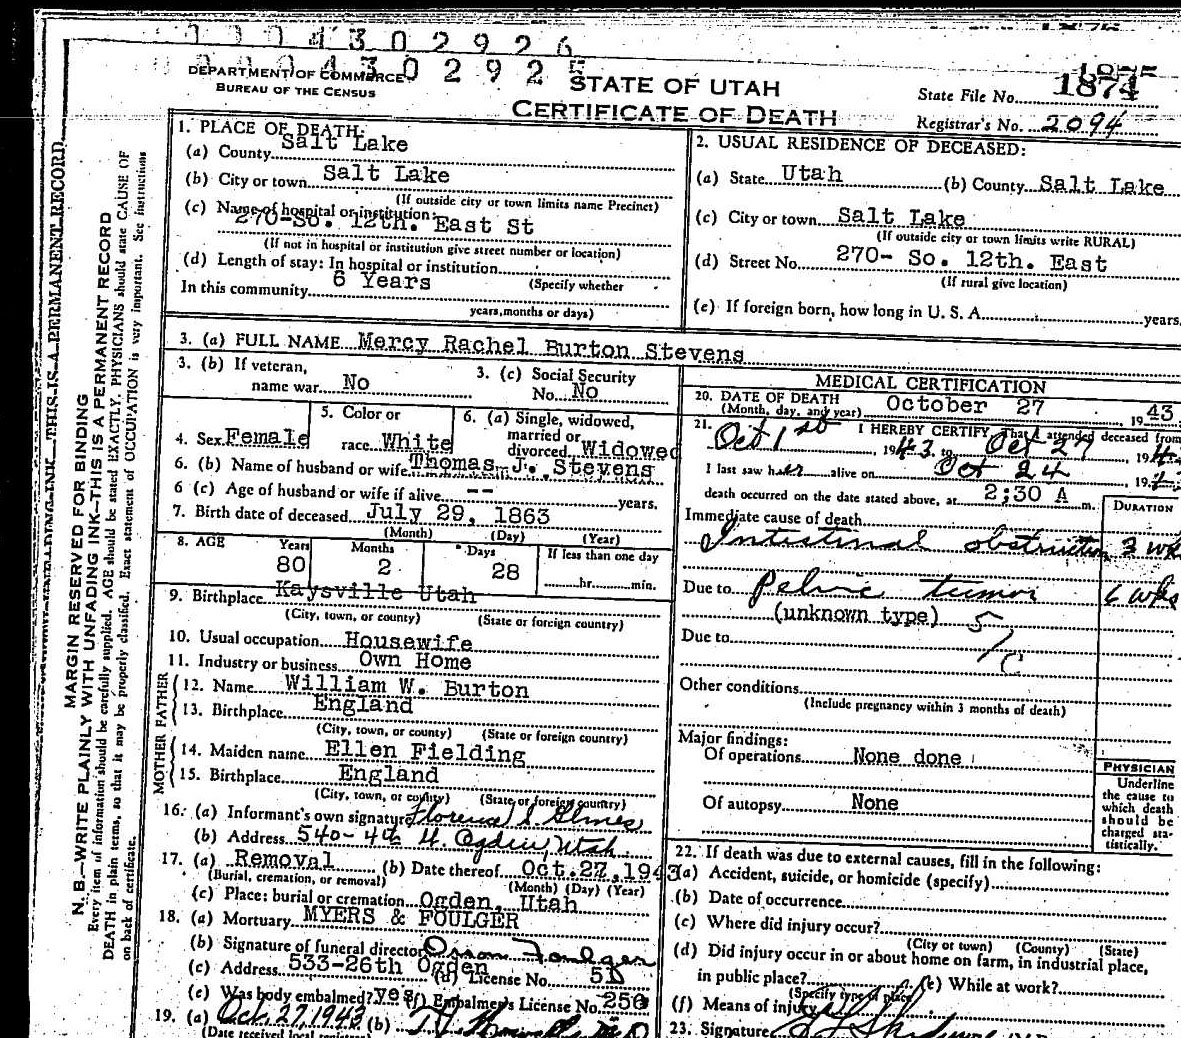 0004302926
0004302925
DEPARTMENT OF COMMERCE
BUREAU OF THE CENSUS
STATE OF UTAH
CERTIFICATE OF DEATH
State File No. 1874
Registrar's No. 2094
MARGIN RESERVED FOR BINDING
N. B.—WRITE PLAINLY WITH UNFADING INK—THIS IS A PERMANENT RECORD
Every item of information should be carefully supplied. AGE should be stated EXACTLY. PHYSICIANS should state CAUSE OF
DEATH in plain terms, so that it may be properly classified. Exact statement of OCCUPATION is very important. See instructions
on back of certificate.
1. PLACE OF DEATH:
(a) County Salt Lake
(b) City or town Salt Lake
(If outside city or town limits name Precinct)
(c) Name of hospital or institution:
270-So. 12th. East St
(If not in hospital or institution give street number or location)
(d) Length of stay: In hospital or institution
(Specify whether
In this community 6 Years
years, months or days)
2. USUAL RESIDENCE OF DECEASED:
(a) State Utah (b) County Salt Lake
(c) City or town Salt Lake
(If outside city or town limits write RURAL)
(d) Street No. 270- So. 12th. East
(If rural give location)
(e) If foreign born, how long in U. S. A. years
3. (a) FULL NAME Mercy Rachel Burton Stevens
3. (b) If veteran,
name war No
3. (c) Social Security
No. No
4. Sex Female
5. Color or
race White
6. (a) Single, widowed,
married or
divorced Widowed
6. (b) Name of husband or wife Thomas J. Stevens
6 (c) Age of husband or wife if alive -- years.
7. Birth date of deceased July 29, 1863
(Month) (Day) (Year)
8. AGE Years Months Days If less than one day
80 2 28 hr. min.
9. Birthplace Kaysville Utah
(City, town, or county) (State or foreign country)
10. Usual occupation Housewife
11. Industry or business Own Home
FATHER
12. Name William W. Burton
13. Birthplace England
(City, town, or county) (State or foreign country)
MOTHER
14. Maiden name Ellen Fielding
15. Birthplace England
(City, town, or county) (State or foreign country)
16. (a) Informant's own signature Florence S.
(b) Address 540-4th Ogden, Utah.
17. (a) Removal (b) Date thereof Oct. 27, 1943
(Burial, cremation, or removal) (Month) (Day) (Year)
(c) Place: burial or cremation Ogden, Utah
18. (a) Mortuary MYERS & FOULGER
(b) Signature of funeral director Orson Foulger
(c) Address 533-26th Ogden (d) License No.
(e) Was body embalmed? yes (f) Embalmer's License No. 250
19. (a) Oct. 27, 1943 (b)
(Date received local registrar)
MEDICAL CERTIFICATION
20. DATE OF DEATH
(Month, day, and year) October 27 1943
21. I HEREBY CERTIFY, That I attended deceased from
Oct 1st 1943 to Oct 27 194
I last saw her alive on Oct 24, 19
death occurred on the date stated above, at 2;30 A m.
DURATION
Immediate cause of death
Intestinal obstruction 3 wks
Due to Pelvic tumor 6 wks
(unknown type)
Due to
Other conditions
(Include pregnancy within 3 months of death)
Major findings:
Of operations None done
Of autopsy None
PHYSICIAN
Underline
the cause to
which death
should be
charged sta-
tistically.
22. If death was due to external causes, fill in the following:
(a) Accident, suicide, or homicide (specify)
(b) Date of occurrence
(c) Where did injury occur?
(City or town) (County) (State)
(d) Did injury occur in or about home on farm, in industrial place,
in public place? (e) While at work?
(Specify type of place)
(f) Means of injury
23. Signature